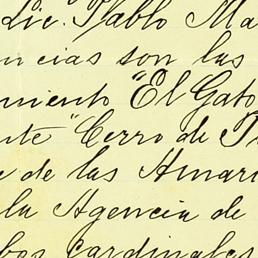 Lic. Pablo Ma
ncias son las
miento "El Gato
nte" Cerro de T
e de las Amari
la Agencia de
bos Cardinales